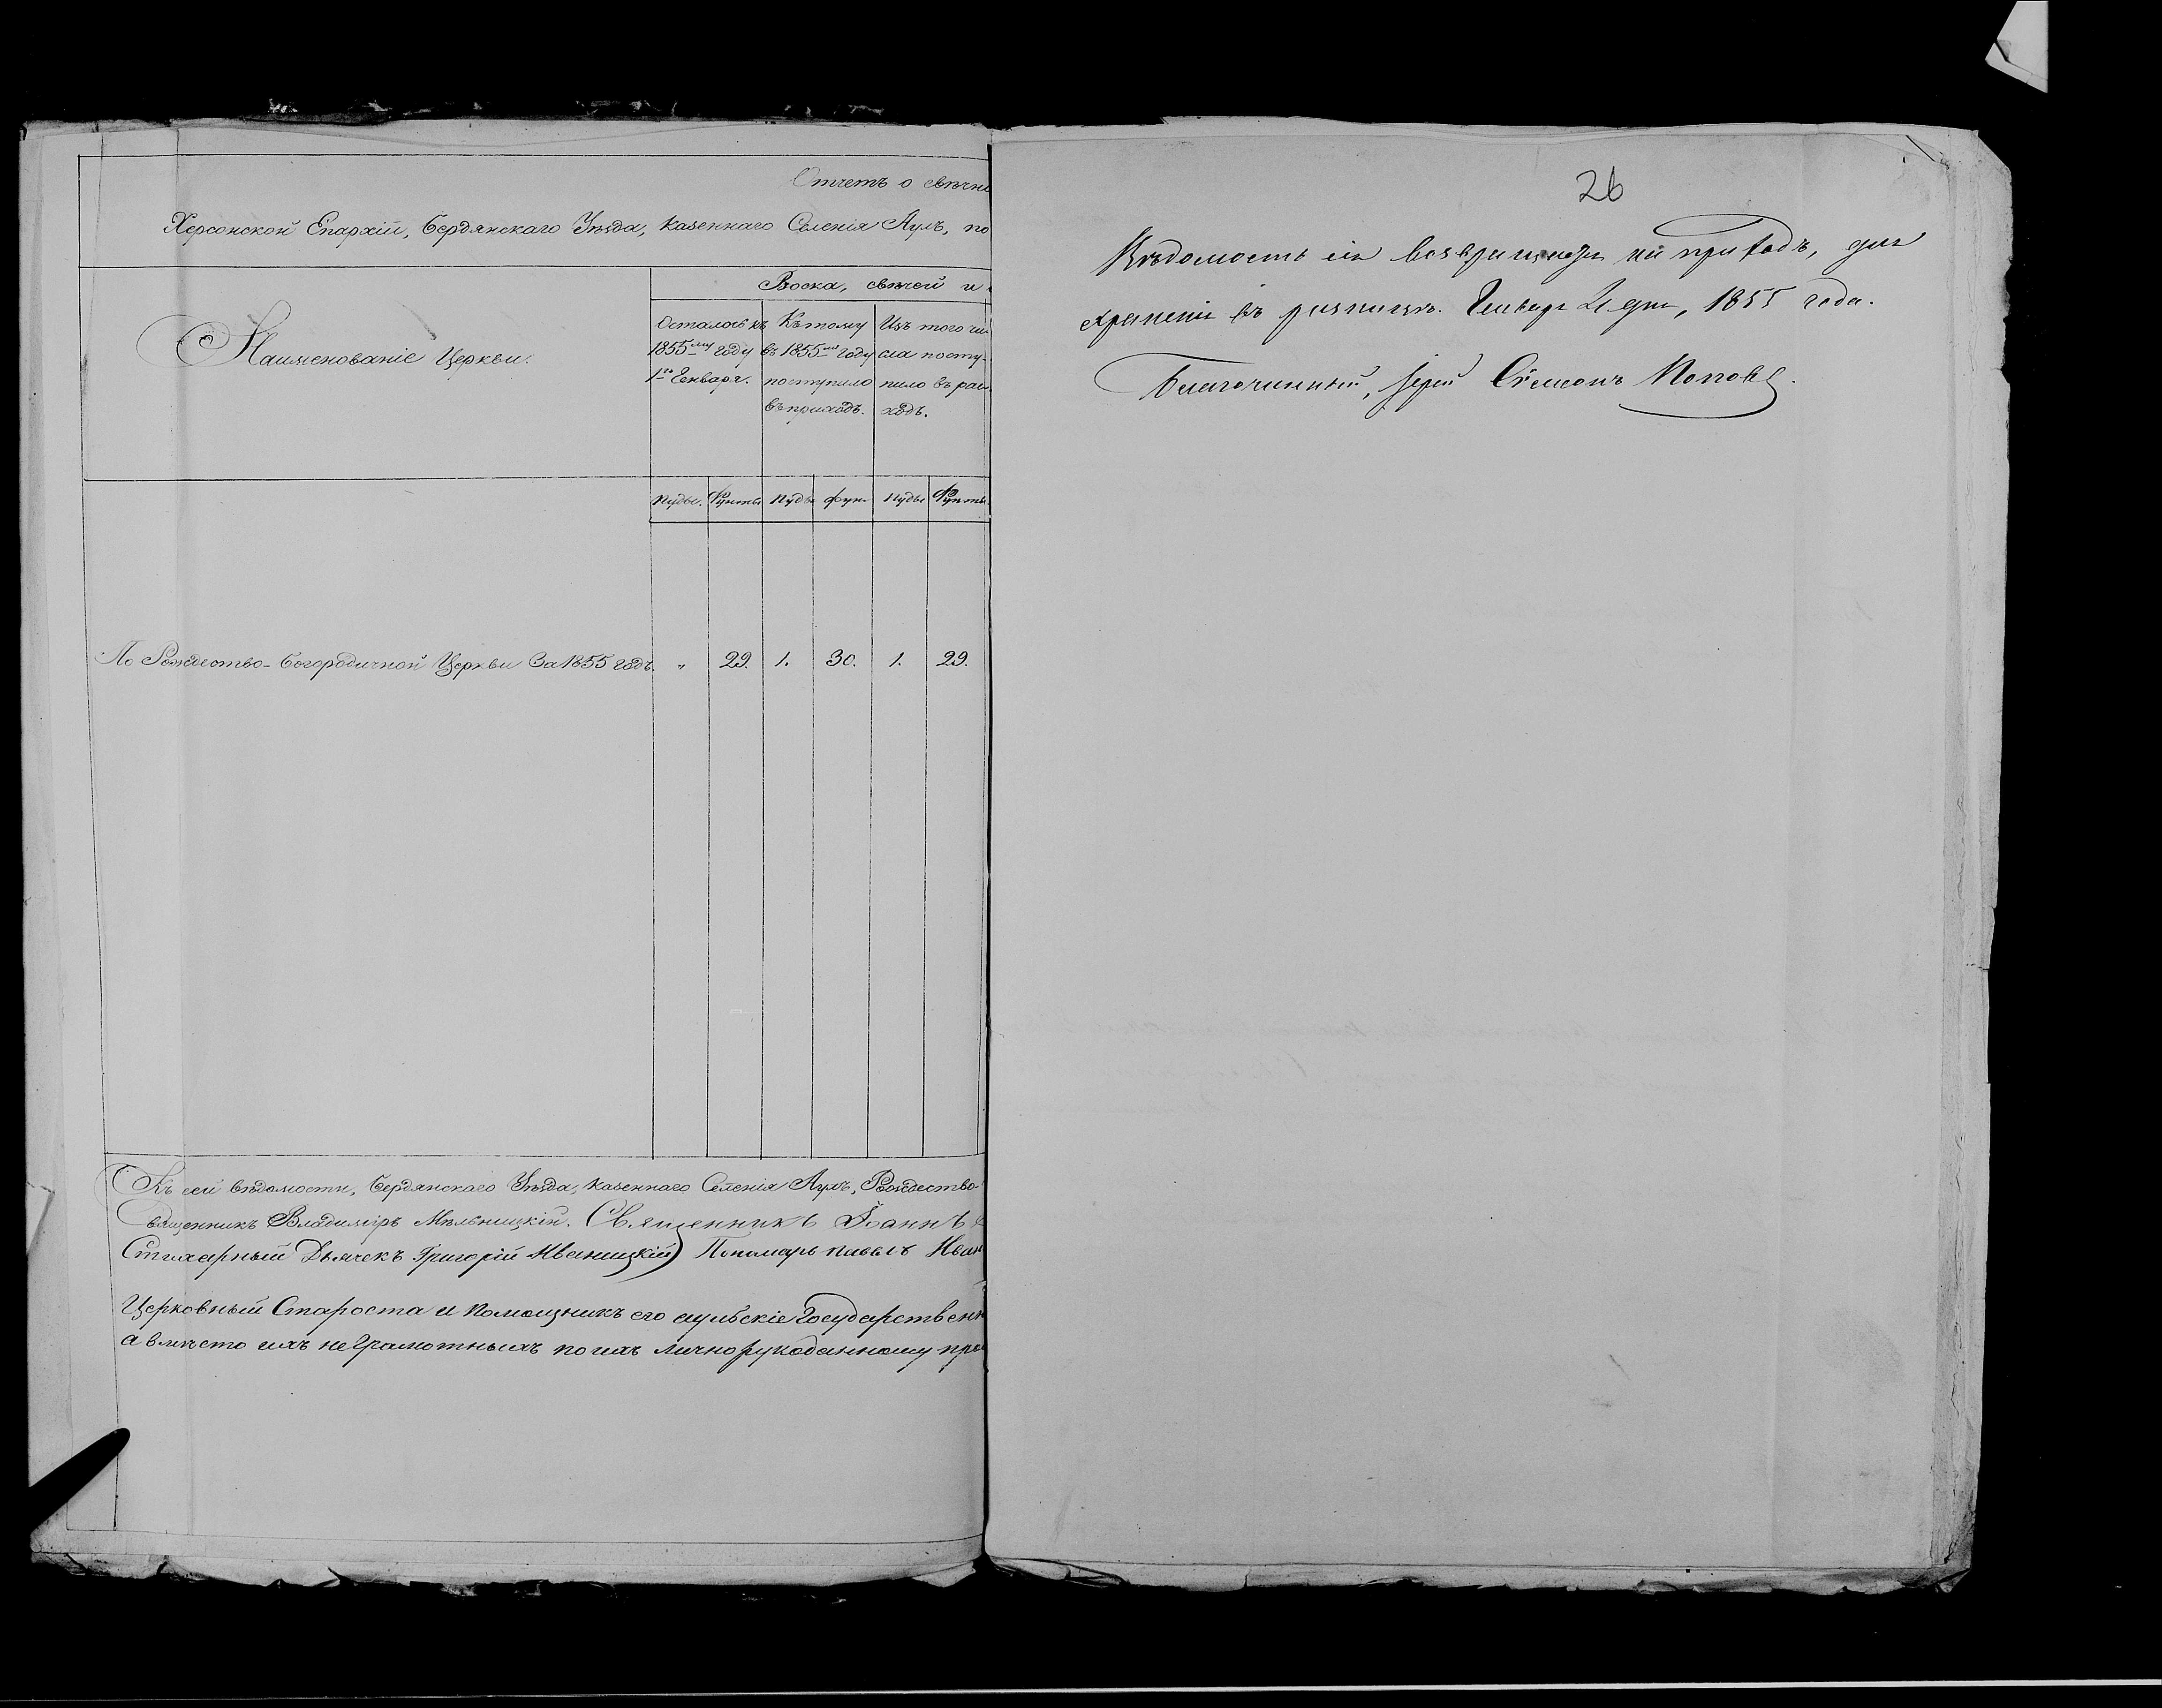 Отчетъ о свѣчн
Херсонской Епархіи, Бердянскаго Уѣзда, казеннаго Селенія Аулъ, по
Наименованіе Церкви.
Воска, свѣчей и
Осталось къ
1855му году
1е Генваря.
Къ тому
въ 1855мъ году
поступило
въ приходъ.
Изъ того чи
сла посту-
пило въ рас
ходъ.
Пуды. Фунты Пуды фун. Пуды Фунты.
По Рождество-Богородичной Церкви За 1855 годъ. „ 29. 1. 30. 1. 29.
Къ сей вѣдомости, Бердянскаго Уѣзда, казеннаго Селенія Аулъ, Рождество
Священникъ Владиміръ Мельницкій. Священникъ Іоаннъ
Стихарный Дьячекъ Григорій Иваницкій Пономарь Иван
Церковный Староста и помощникъ его аульскіе Государствен
а вмѣсто ихъ неграмотныхъ по ихъ личнорукоданному про
26
Вѣдомость сія возвращается на приходъ, для
храненія въ ризницѣ. Генваря дня, 1855 года.
Благочинный, Іерей Сѵмеонъ Поповъ.